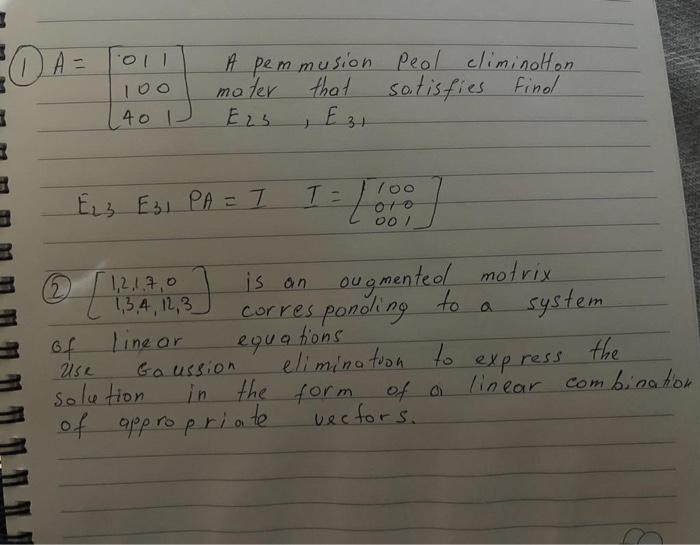 ① A = [ 0 1 1 A pemmusion Peal climinotton
1 0 0 moter that satisfies Find
4 0 1 ] E23 , E31
E23 E31 PA = I I = [ 1 0 0
0 1 0
0 0 1 ]
② [ 1,2,1,7,0 is an augmented matrix
1,3,4,12,3 ] corresponding to a system
of linear equations
Use Gaussion elimination to express the
solution in the form of a linear combination
of appropriate vectors.